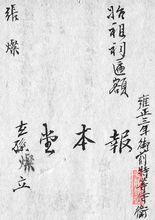 雍正三年御前特等侍衛
始祖祠匾額
報本堂
玄孫燦立
張燦